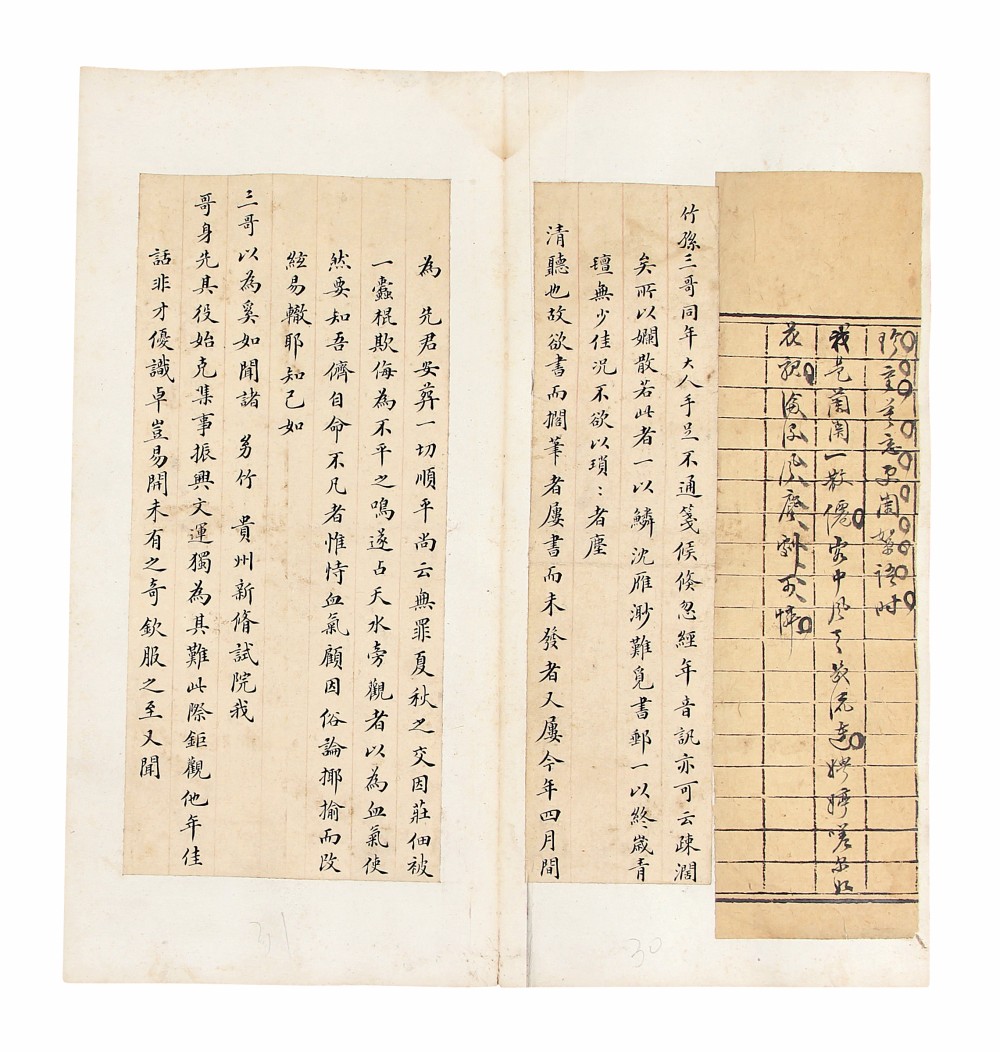 珍重
我是蘭閨一散僊
花
竹孫三哥同年大人手足不通箋候倏忽經年音訊亦可云疎濶
矣所以嬾散若此者一以鱗沈雁渺難覓書郵一以終歲青
氊無少佳况不欲以瑣:者塵
清聽也故欲書而擱筆者屢書而未發者又屢今年四月間
為 先君安葬一切順平尚云無罪夏秋之交因莊佃被
一蠹棍欺侮為不平之鳴遂占天水旁觀者以為血氣使
然要知吾儕自命不凡者惟恃血氣顧因俗論揶揄而改
絃易轍耶知己如
三哥以為奚如聞諸 芴竹 貴州新脩試院我
哥身先其役始克集事振興文運獨為其難此際鉅觀他年佳
話非才優識卓豈易開未有之奇欽服之至又聞
31
30